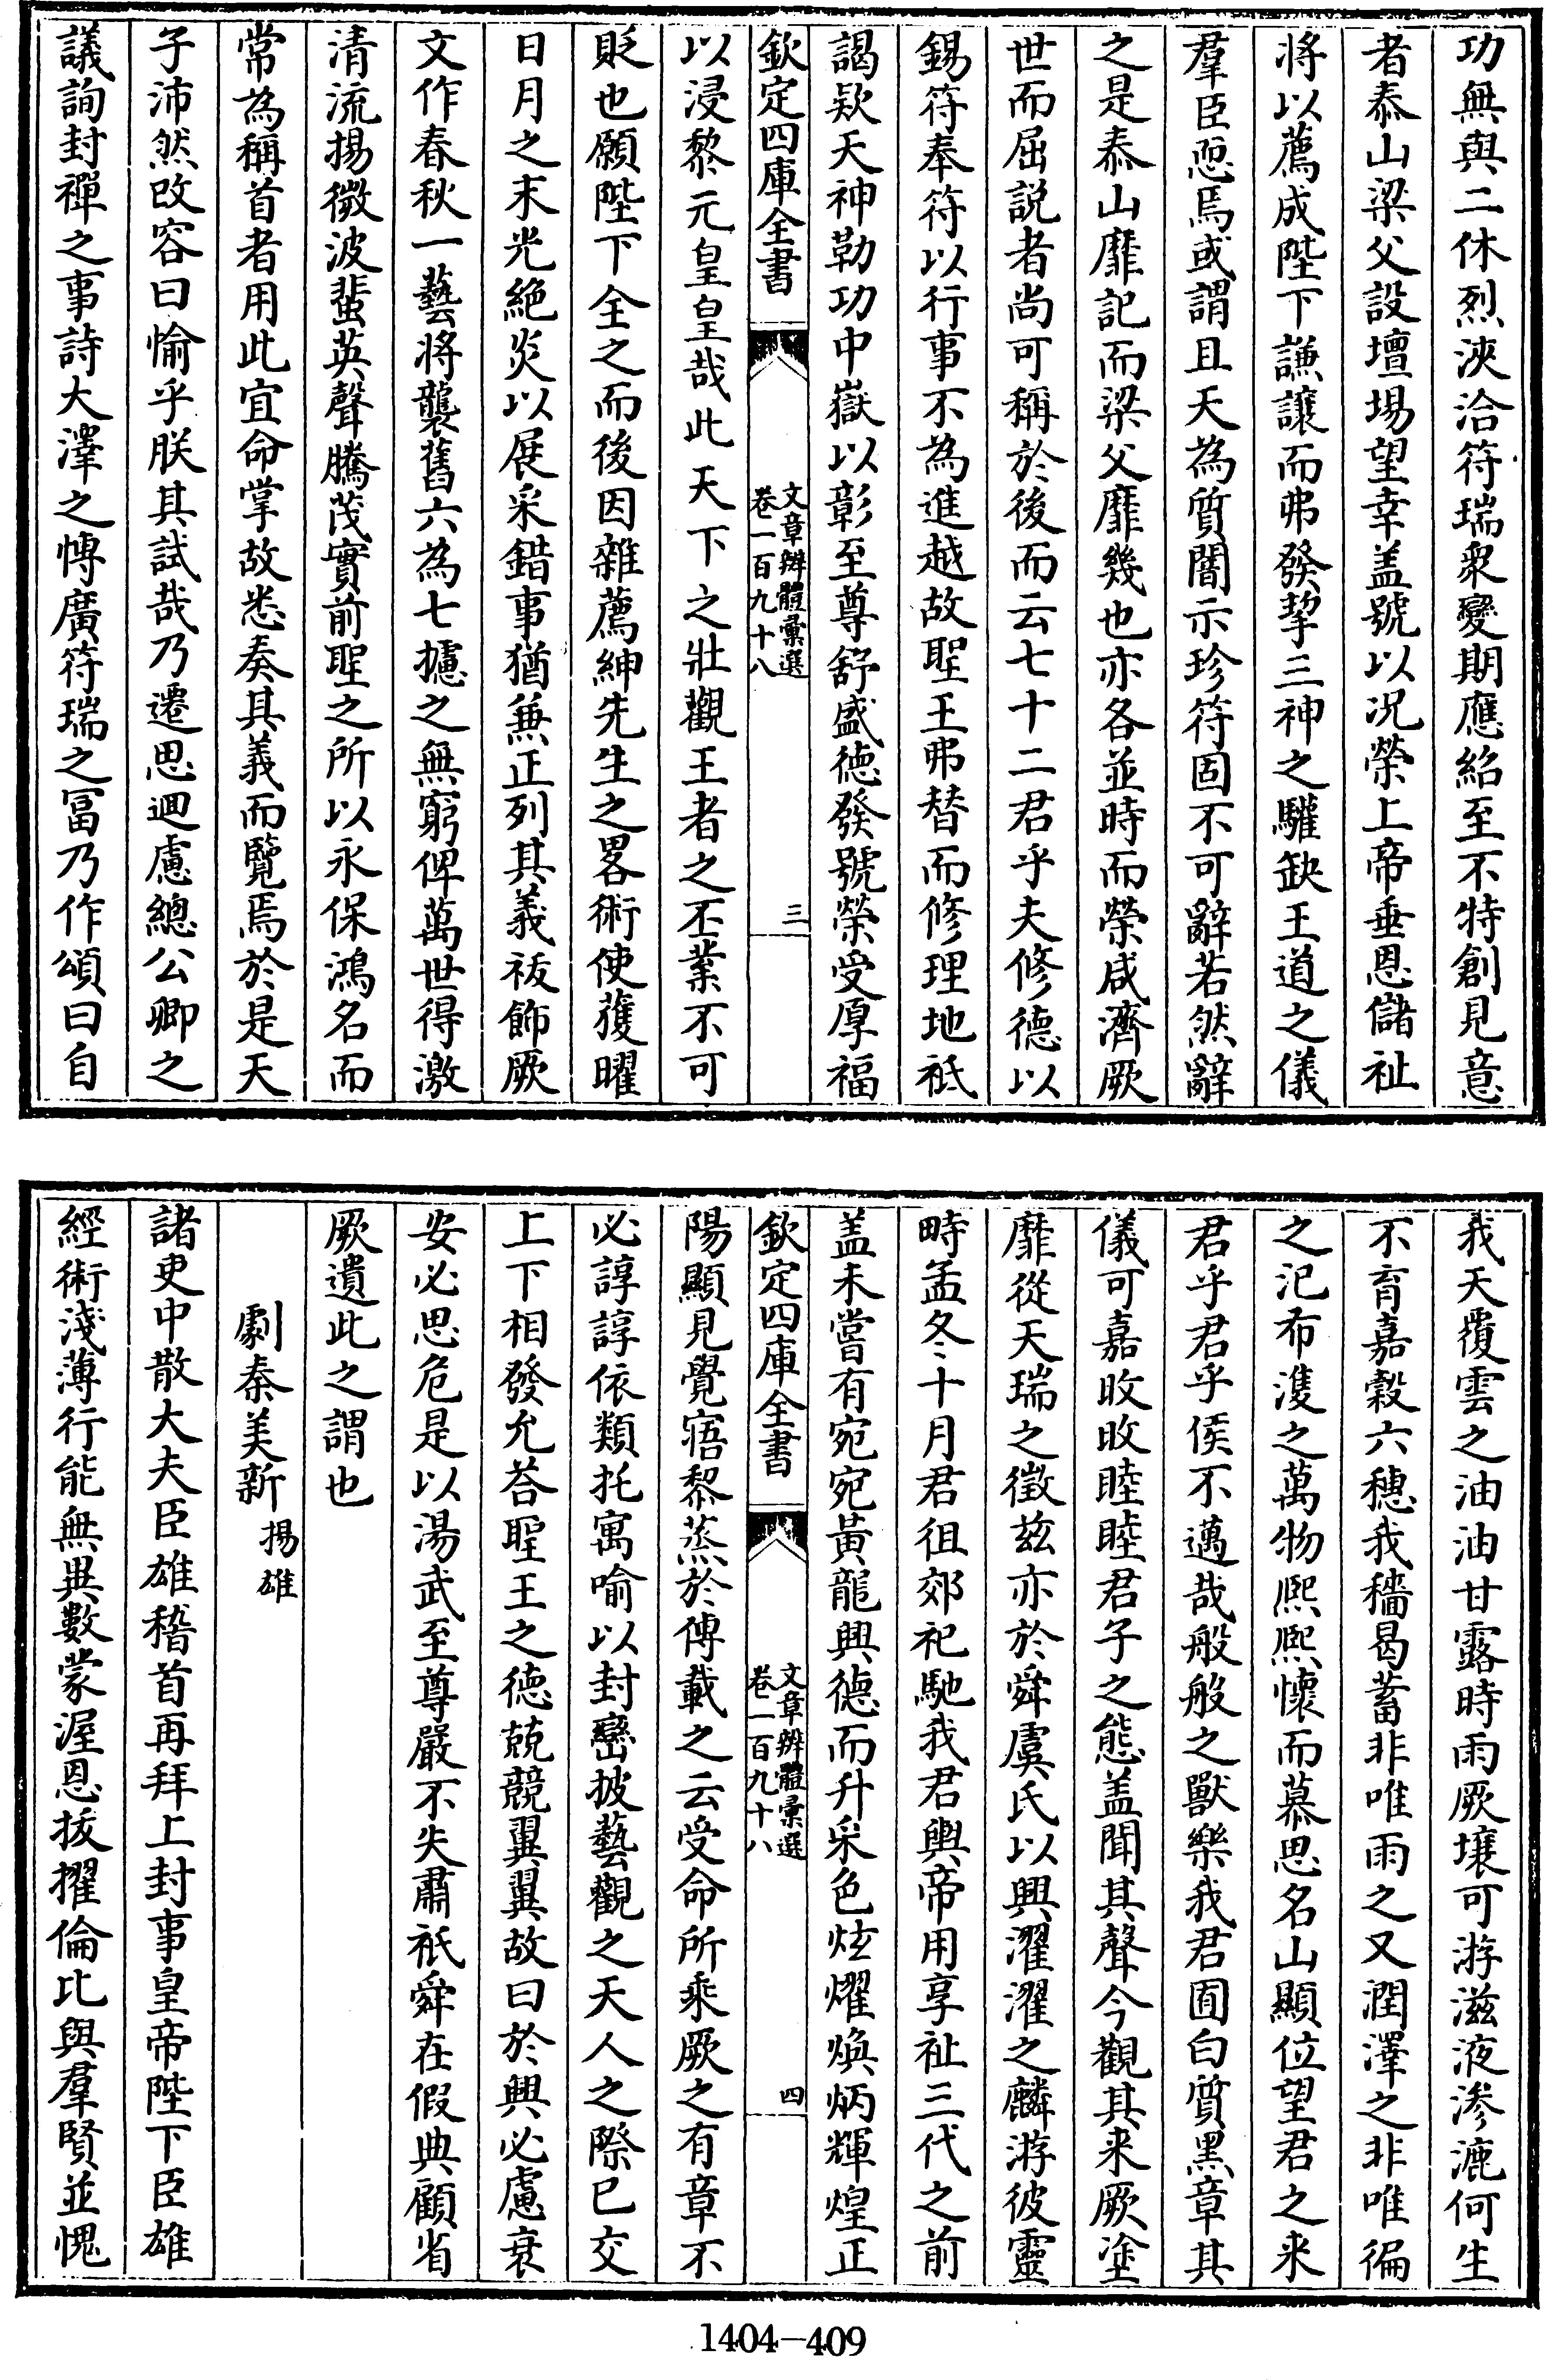 功無與二休烈浹洽符瑞衆變期應紹至不特創見意
者泰山梁父設壇場望幸盖號以况榮上帝垂恩儲祉
將以薦成陛下謙讓而弗發挈三神之驩缺王道之儀
羣臣恧焉或謂且天為質闇示珍符固不可辭若然辭
之是泰山靡記而梁父靡幾也亦各並時而榮咸濟厥
世而屈説者尚可稱於後而云七十二君乎夫修德以
錫符奉符以行事不為進越故聖王弗替而修理地祇
謁欵天神勒功中嶽以彰至尊舒盛徳發號榮受厚福
欽定四庫全書
文章辨體彙選
卷一百九十八
三
以浸黎元皇皇哉此天下之壯觀王者之丕業不可
貶也願陛下全之而後因雜薦紳先生之畧術使獲曜
日月之末光絶炎以展采錯事猶兼正列其義祓飾厥
文作春秋一藝將襲舊六為七攄之無窮俾萬世得激
清流揚微波蜚英聲騰茂實前聖之所以永保鴻名而
常為稱首者用此宜命掌故悉奏其義而覽焉於是天
子沛然改容曰愉乎朕其試哉乃遷思迴慮總公卿之
議詢封禪之事詩大澤之博廣符瑞之冨乃作頌曰自
我天覆雲之油油甘露時雨厥壤可游滋液滲漉何生
不育嘉穀六穗我穡曷蓄非唯雨之又潤澤之非唯徧
之氾布濩之萬物熙熙懷而慕思名山顯位望君之来
君乎君乎侯不邁哉般般之獸樂我君囿白質黒章其
儀可嘉旼旼睦睦君子之態盖聞其聲今觀其来厥塗
靡從天瑞之徵兹亦於舜虞氏以興濯濯之麟游彼靈
畤孟冬十月君徂郊祀馳我君輿帝用享祉三代之前
盖未嘗有宛宛黃龍興德而升采色炫燿煥炳輝煌正
欽定四庫全書
文章辨體彙選
卷一百九十八
四
陽顯見覺寤黎蒸於傳載之云受命所乘厥之有章不
必諄諄依類托寓喻以封巒披藝觀之天人之際已交
上下相發允荅聖王之德兢兢翼翼故曰於興必慮衰
安必思危是以湯武至尊嚴不失肅祇舜在假典顧省
厥遺此之謂也
劇秦美新 揚雄
諸吏中散大夫臣雄稽首再拜上封事皇帝陛下臣雄
經術淺薄行能無異數蒙渥恩拔擢倫比與羣賢並愧
1404-409